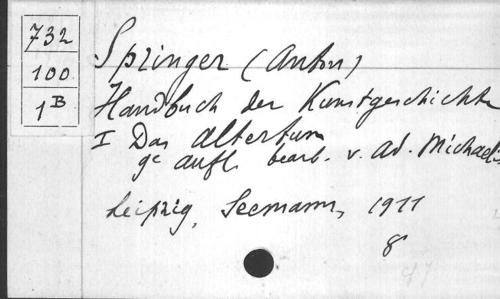 732
100
1 B
Springer (Anton)
Handbuch der Kunstgeschichte
I Das Altertum
9e Aufl. bearb. v. Ad. Michaelis
Leipzig, Seemann, 1911
8°